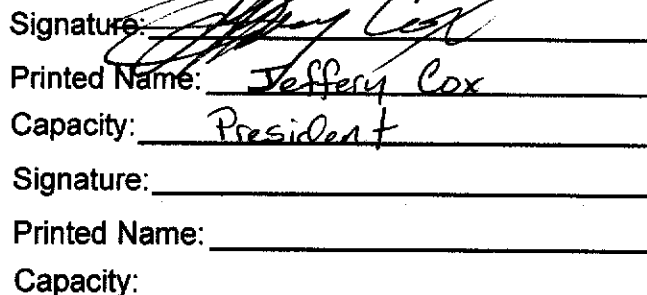 Signature: Jeffery Cox
Printed Name: Jeffery Cox
Capacity: President
Signature:
Printed Name:
Capacity: